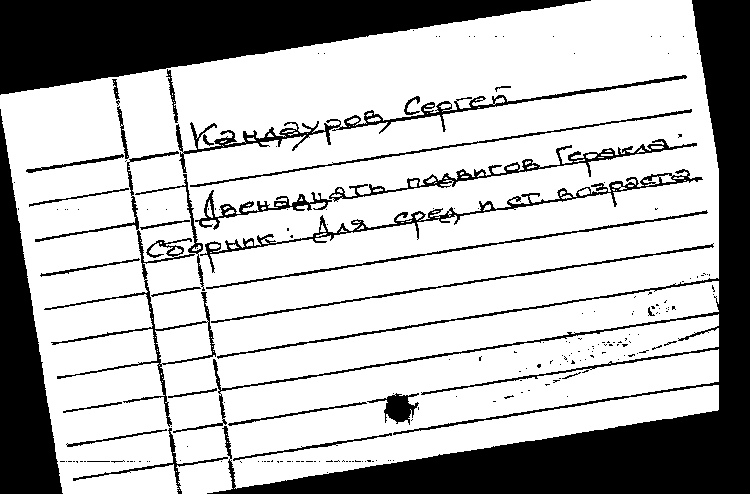 Кандауров, Сергей
Двенадцать подвигов Геракла:
Сборник: Для сред и ст. возраста.